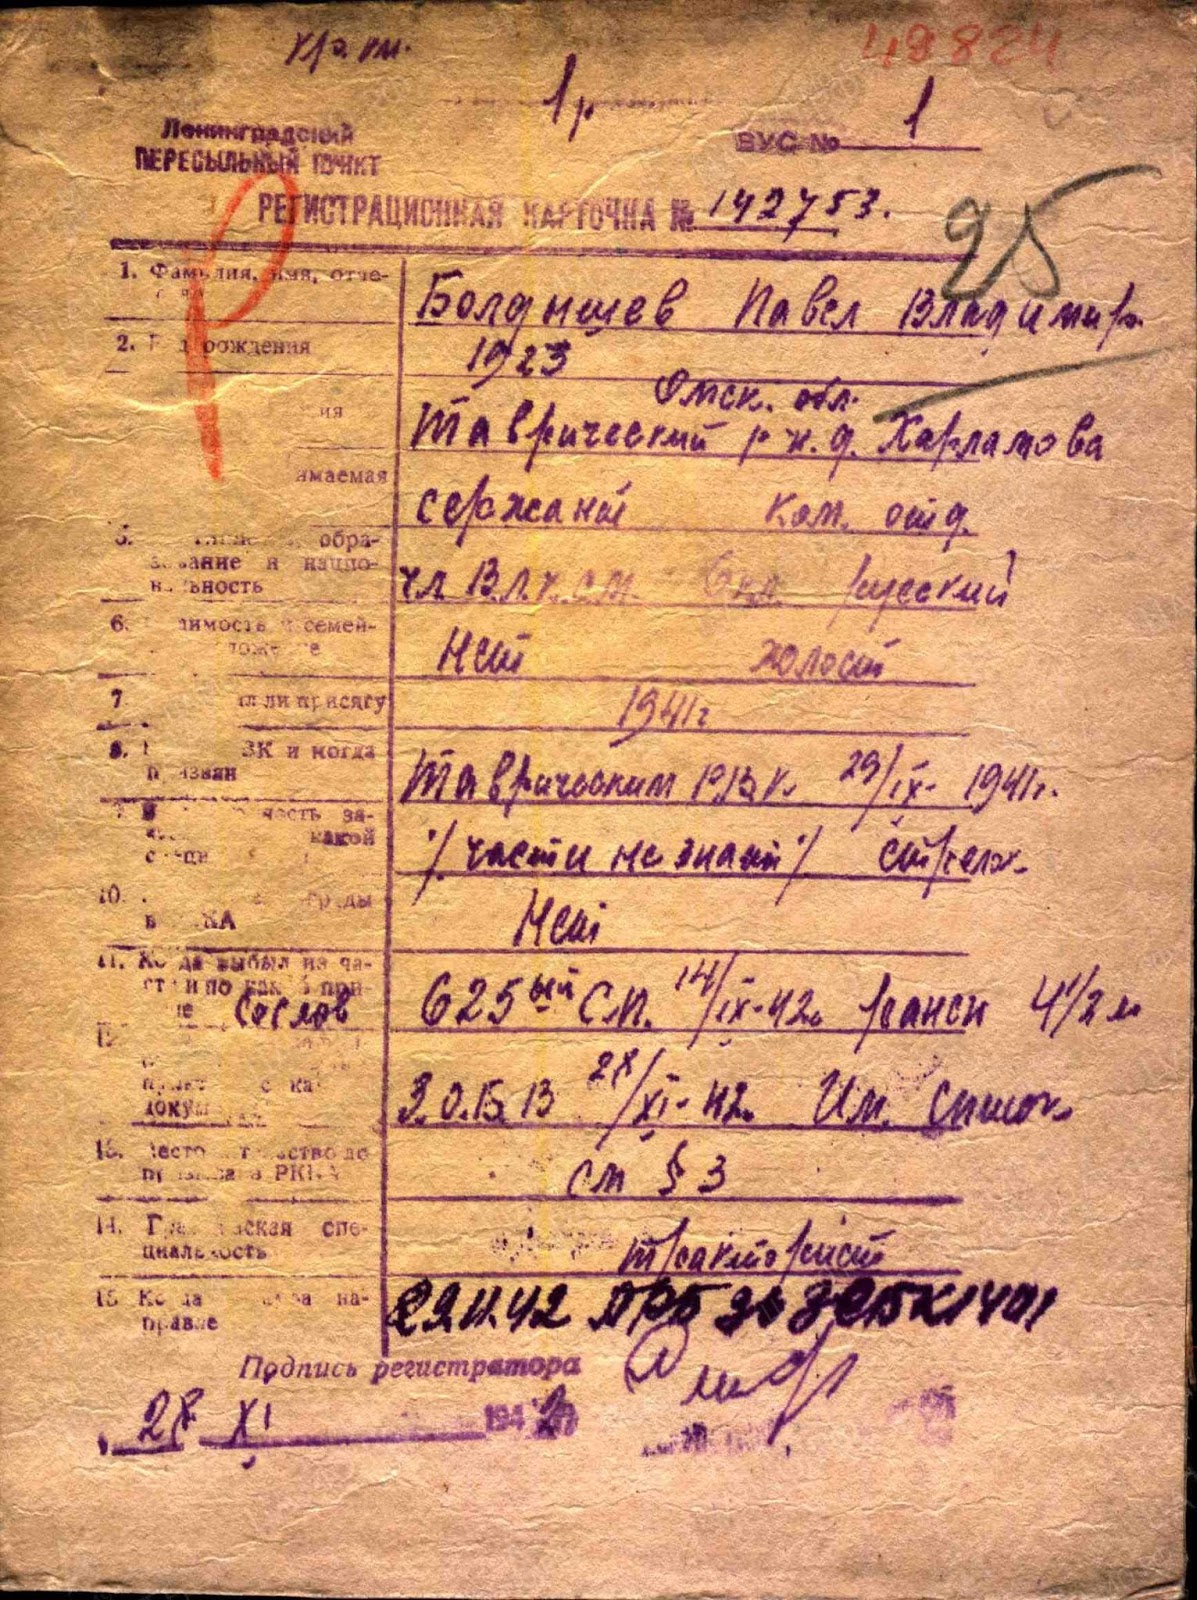 48824
1
Ленинградский
ПЕРЕСЫЛЬНЫЙ ПУНКТ
ВУС № 1
РЕГИСТРАЦИОННАЯ КАРТОЧКА № 142753.
25
1. Фамилия, имя, отче-
Болдышев Павел Владимир.
2. Год рождения
1923
Омск. обл.
Таврический р-н. д. Харламова
имаемая
сержант ком. отд.
5. обра-
зование и нацио-
нальность
чл. В.Л.К.С.М. 6 кл. русский
6. димость и семей-
ложение
Нет холост
7. ли присягу
1941г
8. ВК и когда
призван
Таврическим Р.В.К. 29/IX- 1941г.
9. часть за-
какой
/части не знает/ стрелк.
10. награды
в РККА
Нет
11. Когда выбыл из ча-
сти и по как й при-
не Сослов
625ый С.П. 14/IX-42г ранен 4 1/2 м
12.
пункт с ка
докум
З.О.Б.В 28/XI-42. Им. список
13. Место жительство до
призыва в РККА
см § 3
14. Гражданская спе-
циальность
тракторист
15 Когда на-
правле
29.11.42
Подпись регистратора
28 XI 1942